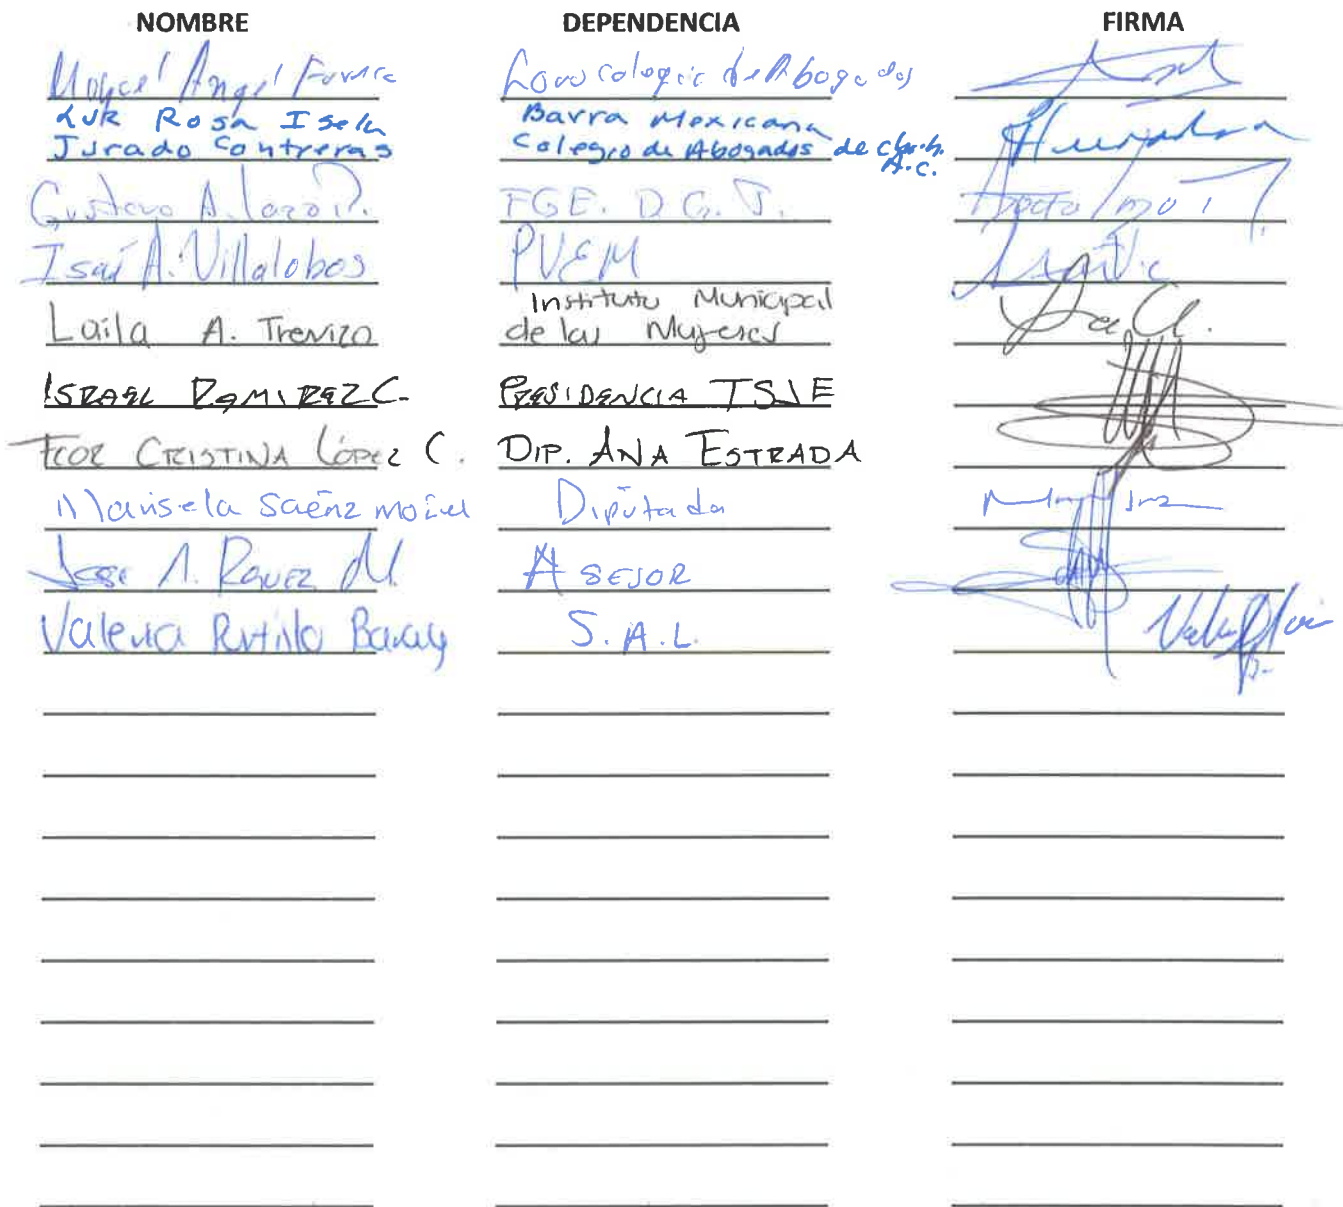 NOMBRE DEPENDENCIA FIRMA
Angel de Abogados
Luz Rosa Isela Barra Mexicana
Jurado Contreras Colegio de Abogados de Chih. A.C.
Gustavo A. FGE. D.G.J.
Isaí A. Villalobos PVEM
Laila A. Trevizo Instituto Municipal
de las Mujeres
ISRAEL RAMIREZ C. PRESIDENCIA TSJE
FLOR CRISTINA LÓPEZ C. DIP. ANA ESTRADA
Marisela Saénz Moriel Diputada
Jose A. M. ASESOR
Valeria Portillo S.A.L.